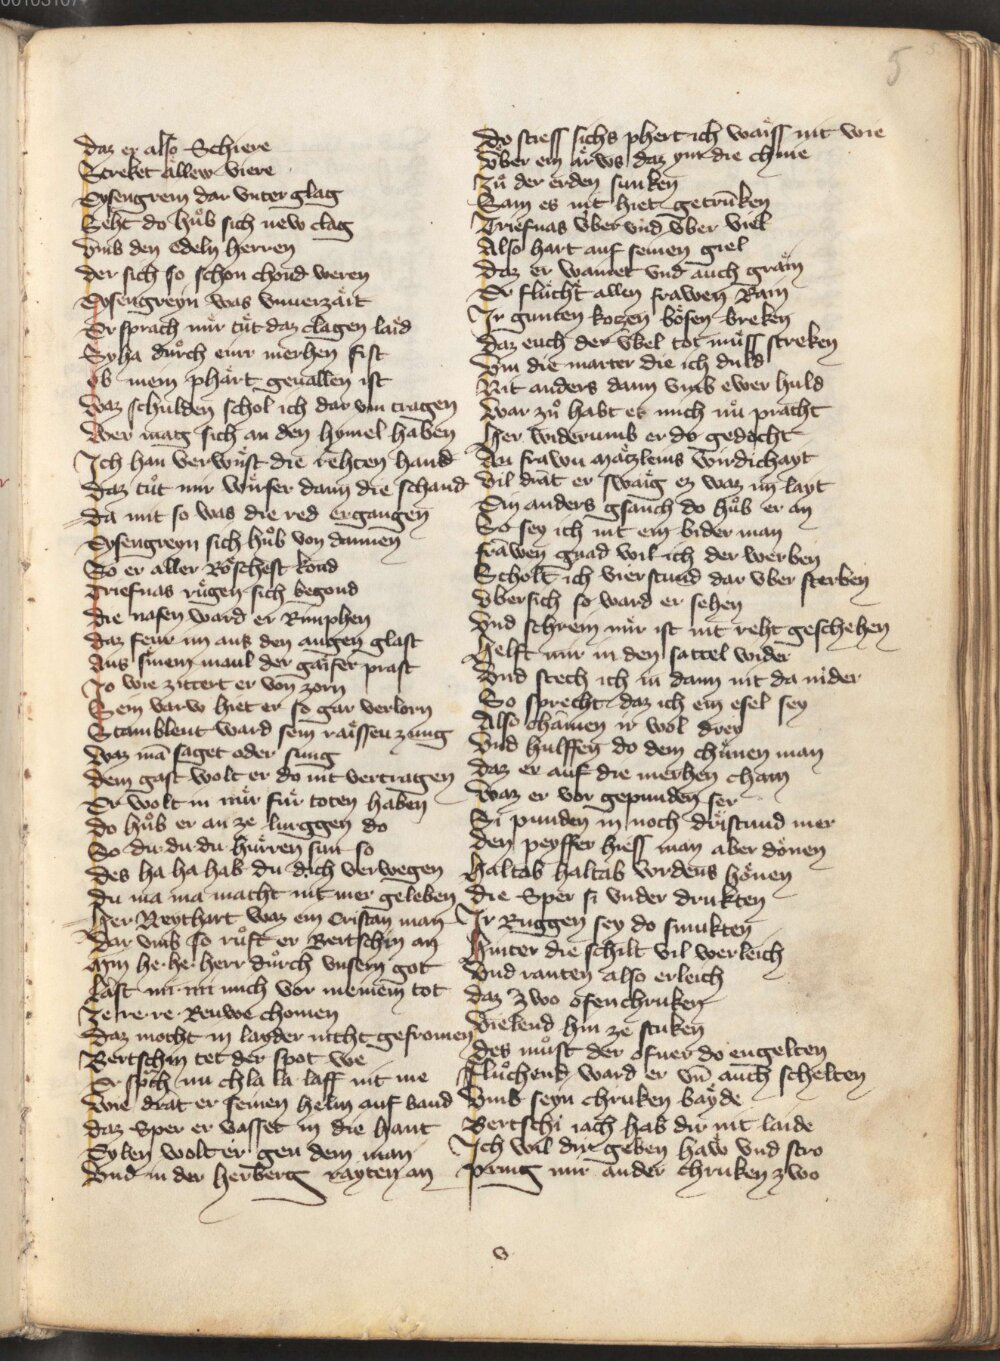 00103107
5
daz er also Schiere
Streket allew viere
Eysengrein dar vnter glag
Seht do hůb sich new clag
Vmb den edeln herren
der sich so schon chond weren
Eysengreyn was vnuerzäit
Er sprach mir tůt daz clagen laid
Syha důrch ewr merhen fist
Ob mein phärt geuallen ist
Waz schulden schol ich dar vm tragen
Wer mag sich an den hymel haben
Ich han verwüst die rehten hand
Daz tůt mir würser dann die schand
Da mit so was die red ergangen
Eysengreyn sich hůb von dannen
So er aller Röschest kond
Triefnas rügen sich begond
Die nasen ward er Rimphen
Daz feur im aus den augen glast
Aus sinem maul der gaifer prast
Jo wie zittert er von zorn
Sein varw hiet er so gar verlorn
Stamblent ward sein raissen zung
Waz mā saget oder sung
Dem gast wolt er do nit vertragen
Er wolt in nür für toten haben
Do hůb er an ze lurggen do
So du du du hůrren sun so
Des ha ha hab du dich verwegen
Du ma ma macht nit mer geleben
Her Neythart waz ein Cristan man
Dar vmb so růft er Bertschin an
Min he he herr důrch vnsern got
Last mi mi mich vor meinem tot
Ze re re Reuwe chomen
Daz mocht in layder nicht gefromen
Bertschin tet der spot we
Er spch nu chla la laff nit me
Wie drat er seinen helm auf band
Daz Sper er vasset in die hant
Eylen wolt er gen dem man
Vnd in der herberg rayten an
Do stiess sichs phert ich waiss nit wie
Vber ein arws daz ym die chnie
Zů der erden sunken
Sam es nit hiet getrūken
Triefnas vber vnd vber viel
Also hart auf seinen giel
Daz er wainet vnd auch grain
Er flůcht allen frawen Rain
Ir gunten kotzen bösen breken
Daz euch der vbel tot müss streken
Vm die marter die ich duld
Nit anders dann vmb ewer huld
War zů habt er mich nu pracht
Her widerumb er do gedocht
An frawn mätzleins wirdichayt
Vil drat er swaig ez waz im layt
Ein anders gsanch do hůb er an
So sey ich nit ein bider man
Frawen gnad wil ich der werben
Scholt ich vierstund dar vber sterben
Vbersich so ward er sehen
Vnd schrein mir ist nit reht geschehen
Helft mir in den sattel wider
Vnd stech ich in dann nit da nider
So sprecht daz ich ein esel sey
Also chamen ir wol drey
Vnd hulffen do dem chůnen man
Daz er auf die merhen cham
Waz er vor gepunden ser
Si punden in noch dristund mer
Den peyffer hiess man aber dönen
Haltab haltab vordens hönen
Die Sper si vnder drukten
Ir Ruggen sey do smukten
Hinter die schilt vil werleich
Vnd ranten also erleich
Daz zwo ofenchruken
Vielend hin ze stuken
Des můst der ofner do engelten
Flůchend ward er vn̄ auch schelten
Vmb seyn chruken bayde
Bertschi iach hab dir nit laide
Ich wil dir geben haw vnd stro
Pring mir ander chruken zwo